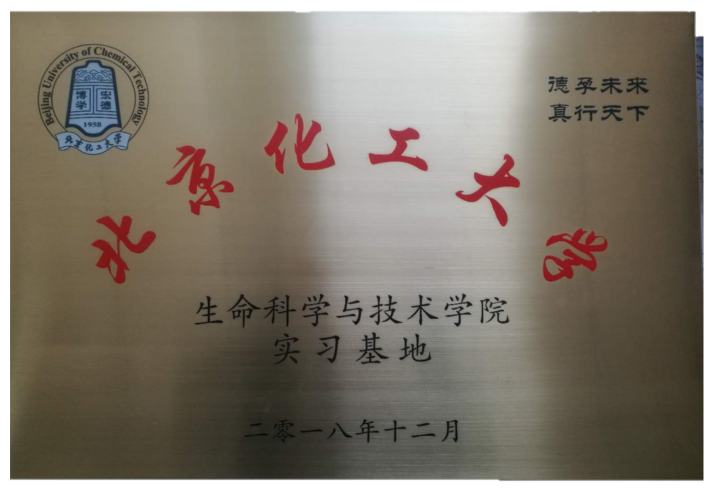 Beijing University of Chemical Technology
博学 宏德
1958
北京化工大学
德孕未来
真行天下
北京化工大学
生命科学与技术学院
实习基地
二零一八年十二月